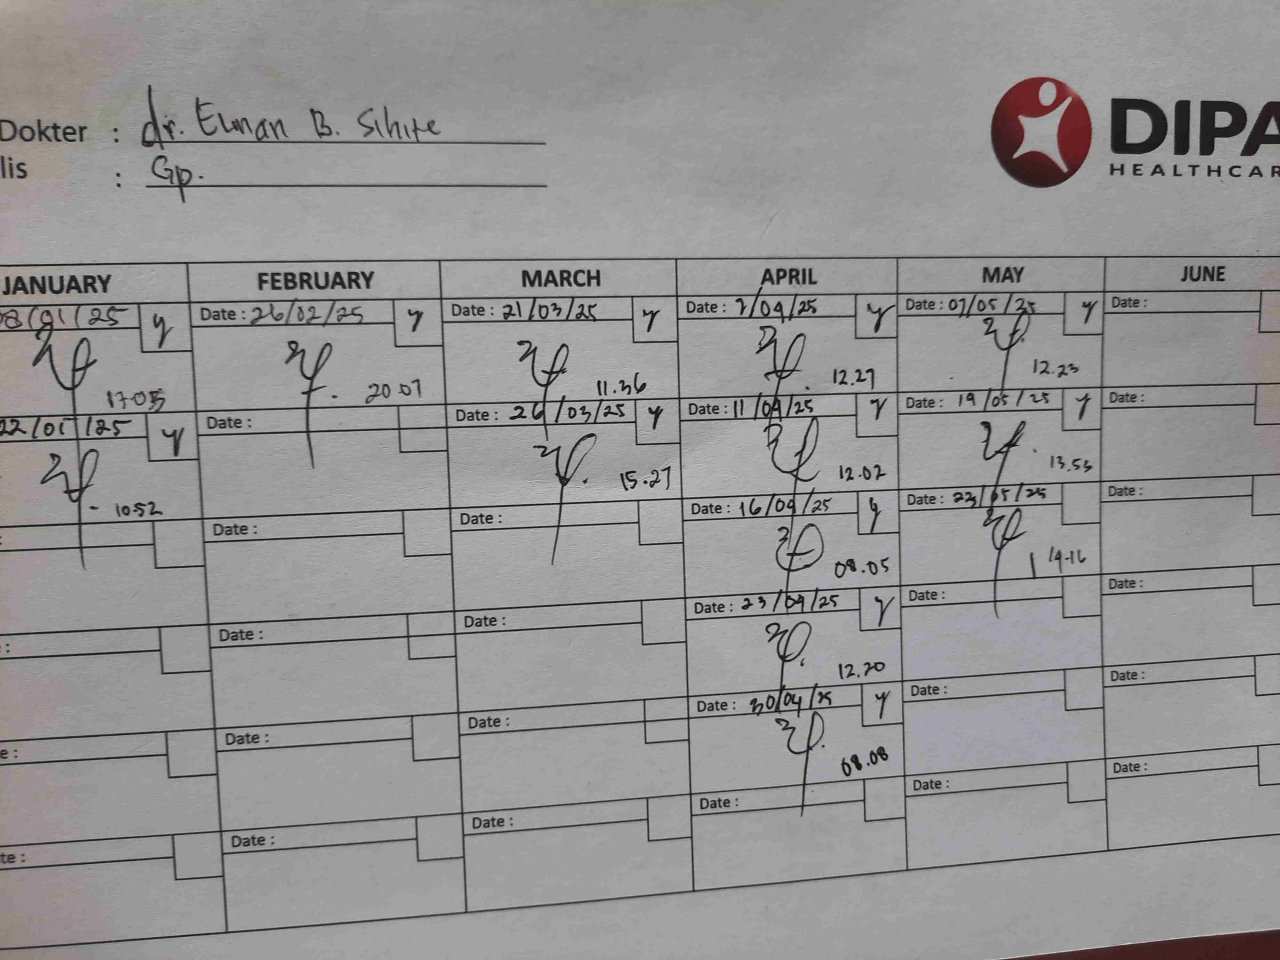 Dokter : dr. Elman B. Sihite
lis : Gp.
DIPA
HEALTHCAR
JANUARY FEBRUARY MARCH APRIL MAY JUNE
08/01/25 y Date : 26/02/25 y Date : 21/03/25 y Date : 2/04/25 y Date : 07/05/25 y Date :
17.05 20.07 11.36 12.27 12.23
22/01/25 y Date : Date : 26/03/25 y Date : 11/04/25 y Date : 19/05/25 y Date :
10.52 15.27 12.02 13.53
: Date : Date : Date : 16/04/25 y Date : 22/05/25 Date :
08.05 14.16
: Date : Date : Date : 23/04/25 y Date : Date :
12.20
e : Date : Date : Date : 30/04/25 y Date : Date :
08.08
te : Date : Date : Date : Date : Date :